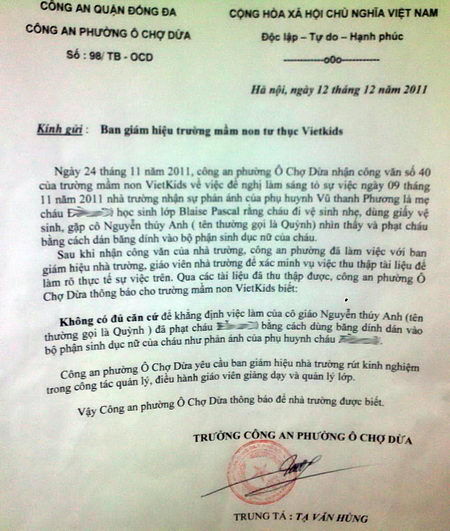 CÔNG AN QUẬN ĐỐNG ĐA
CỘNG HÒA XÃ HỘI CHỦ NGHĨA VIỆT NAM
CÔNG AN PHƯỜNG Ô CHỢ DỪA
Độc lập – Tự do – Hạnh phúc
Số : 98/ TB - OCD
-----------o0o-----------
Hà nội, ngày 12 tháng 12 năm 2011
Kính gửi : Ban giám hiệu trường mầm non tư thục Vietkids
Ngày 24 tháng 11 năm 2011, công an phường Ô Chợ Dừa nhận công văn số 40
của trường mầm non VietKids về việc đề nghị làm sáng tỏ sự việc ngày 09 tháng
11 năm 2011 nhà trường nhận sự phản ánh của phụ huynh Vũ thanh Phương là mẹ
cháu học sinh lớp Blaise Pascal rằng cháu đi vệ sinh nhẹ, dùng giấy vệ
sinh, gặp cô Nguyễn thúy Anh ( tên thường gọi là Quỳnh) nhìn thấy và phạt cháu
bằng cách dán băng dính vào bộ phận sinh dục nữ của cháu.
Sau khi nhận công văn của nhà trường, công an phường đã làm việc với ban
giám hiệu nhà trường, giáo viên nhà trường để xác minh vụ việc thu thập tài liệu để
làm rõ thực tế sự việc trên. Qua các tài liệu đã thu thập được, công an phường Ô
Chợ Dừa thông báo cho trường mầm non VietKids biết:
Không có đủ căn cứ để khẳng định việc làm của cô giáo Nguyễn thúy Anh (tên
thường gọi là Quỳnh ) đã phạt cháu bằng cách dùng băng dính dán vào
bộ phận sinh dục nữ của cháu như phản ánh của phụ huynh cháu
Công an phường Ô Chợ Dừa yêu cầu ban giám hiệu nhà trường rút kinh nghiệm
trong công tác quản lý, điều hành giáo viên giảng dạy và quản lý lớp.
Vậy Công an phường Ô Chợ Dừa thông báo để nhà trường được biết.
TRƯỞNG CÔNG AN PHƯỜNG Ô CHỢ DỪA
TRUNG TÁ : TẠ VĂN HÙNG